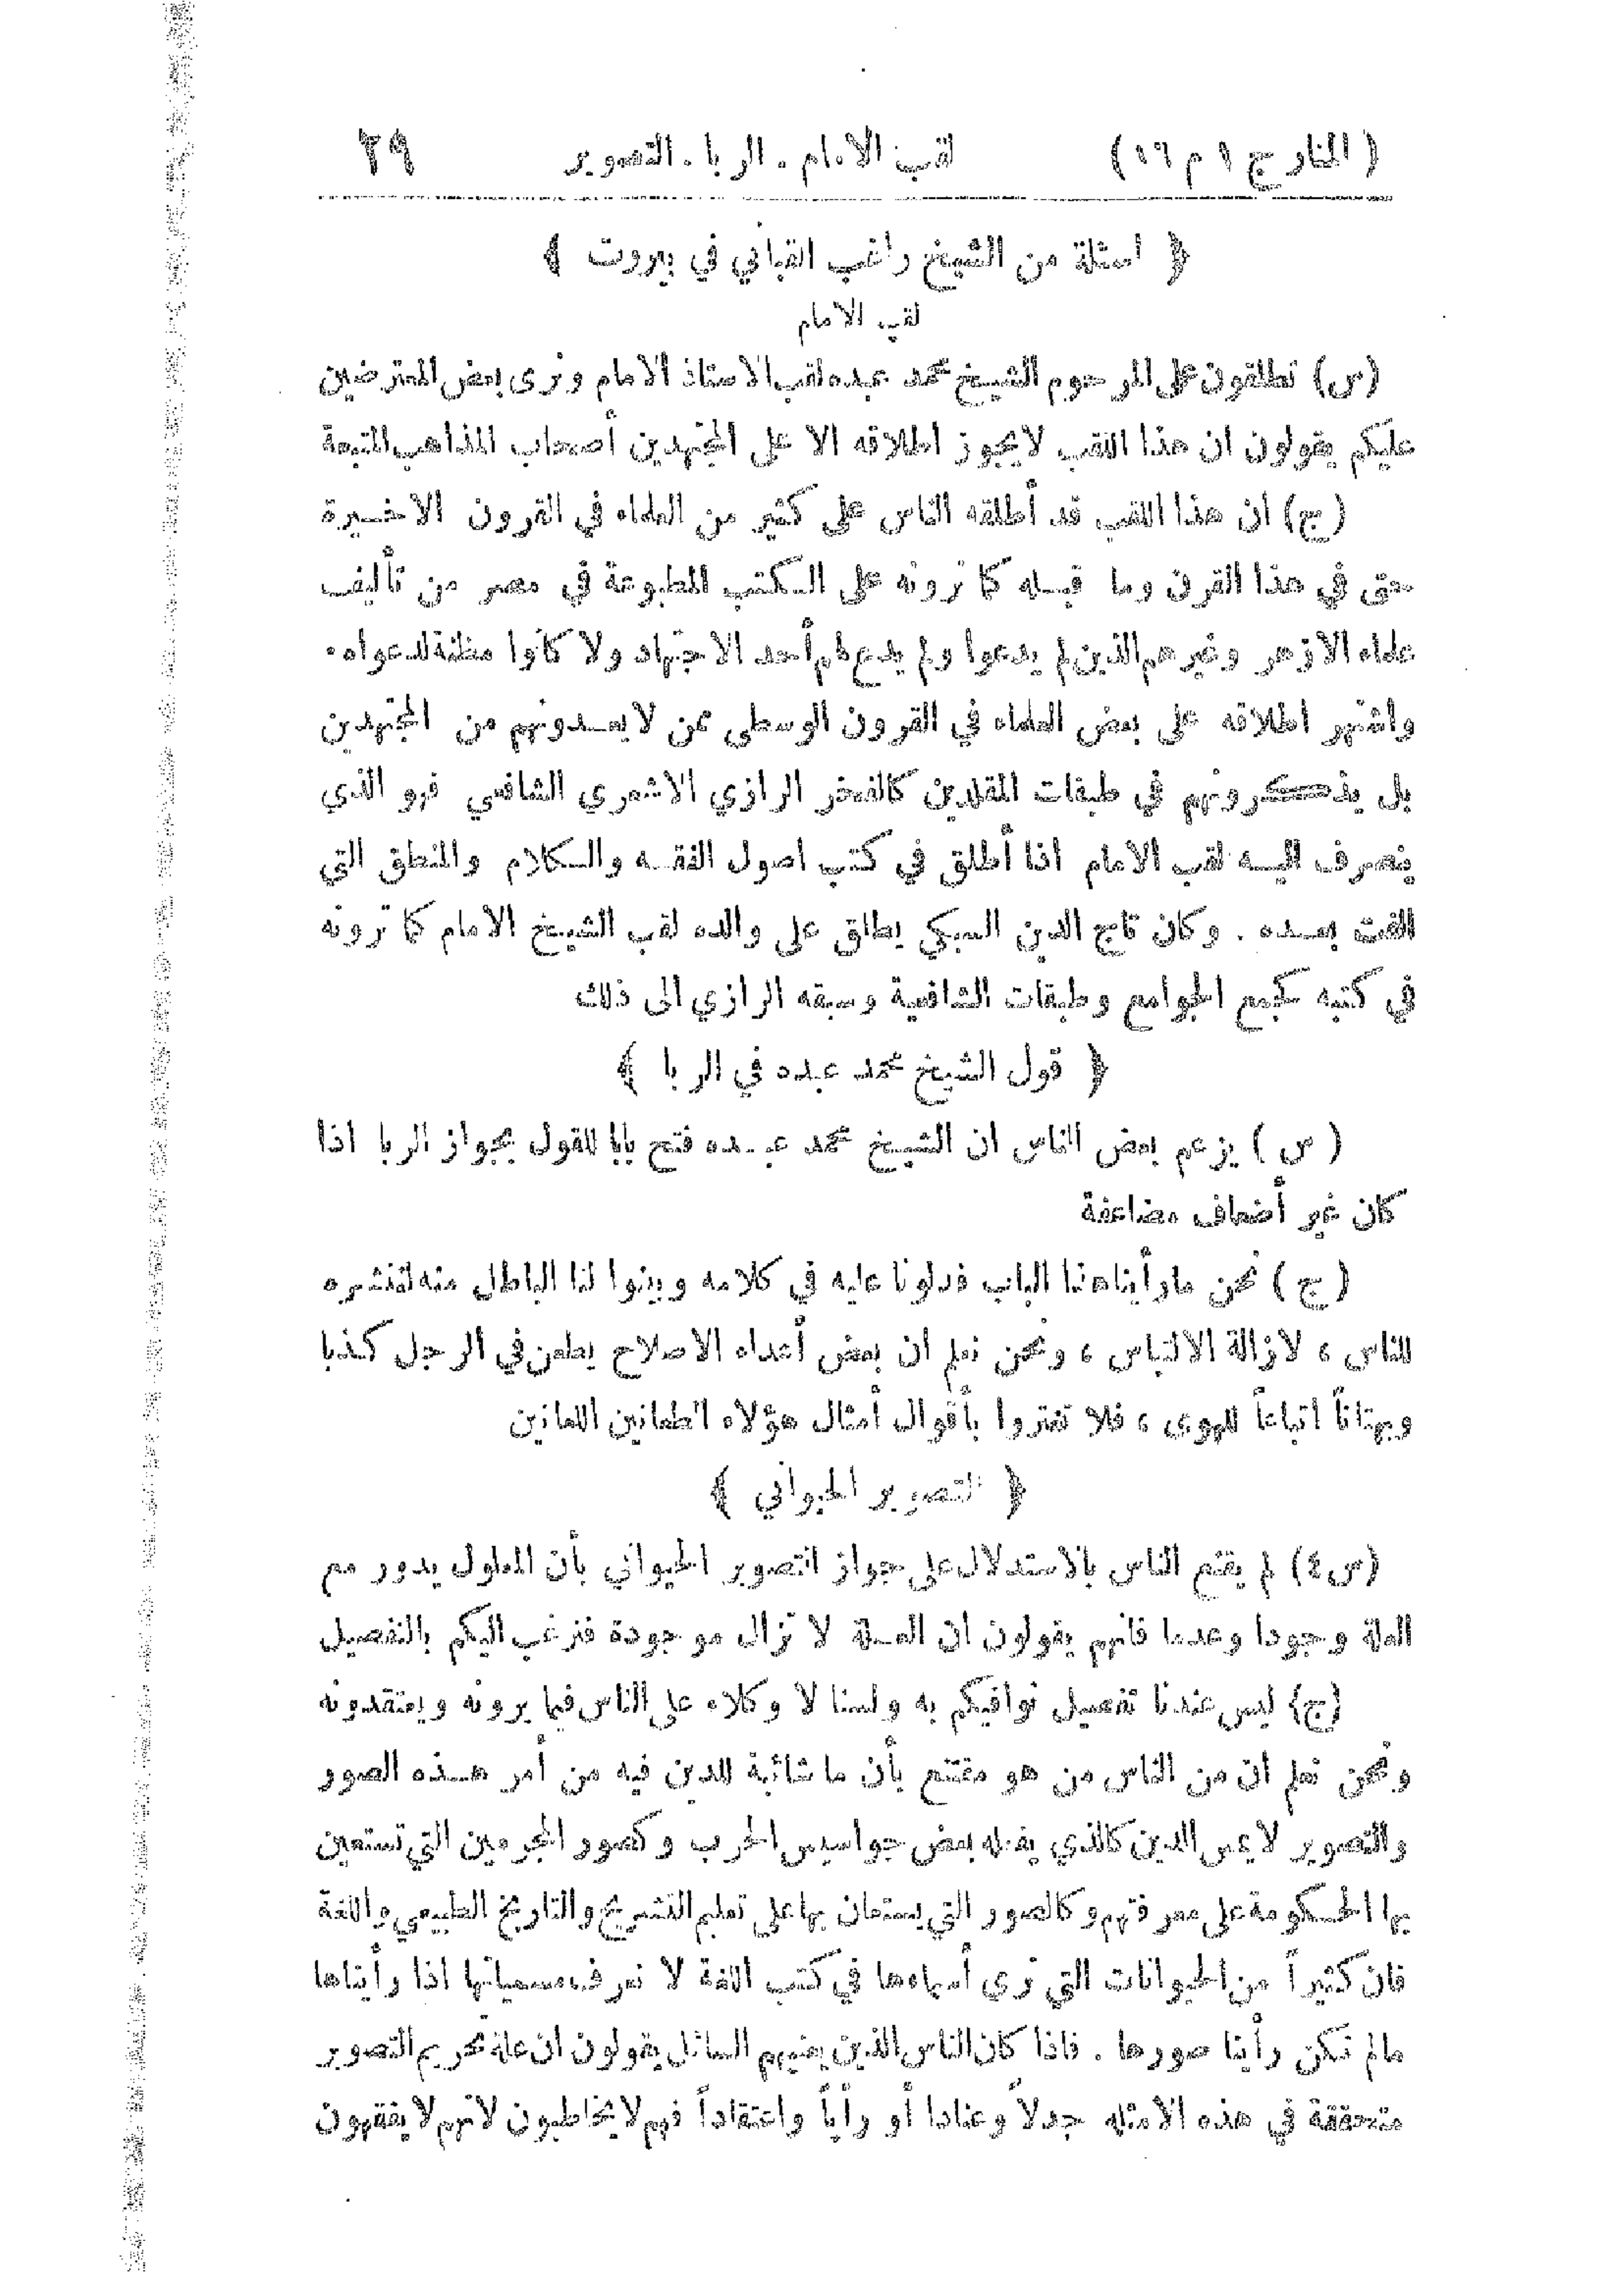 (المنار ج ١ م ١٦) لقب الامام . الربا . التصوير ٢٩
﴿ اسئلة من الشيخ راغب القباني في بيروت ﴾
لقب الامام
(س) تطلقون على المرحوم الشيخ محمد عبده لقب الاستاذ الامام ونرى بعض المعترضين
عليكم يقولون ان هذا اللقب لا يجوز اطلاقه الا على المجتهدين أصحاب المذاهب المتبعة
(ج) ان هذا اللقب قد أطلقه الناس على كثير من العلماء في القرون الاخيرة
حتى في هذا القرن وما قبله كما ترونه على الكتب المطبوعة في مصر من تأليف
علماء الازهر وغيرهم الذين لم يدعوا ولم يدع لهم أحد الاجتهاد ولا كانوا مظنة لدعواه.
واشتهر اطلاقه على بعض العلماء في القرون الوسطى ممن لا يعدونهم من المجتهدين
بل يذكرونهم في طبقات المقلدين كالفخر الرازي الاشعري الشافعي فهو الذي
ينصرف اليه لقب الامام اذا أطلق في كتب اصول الفقه والكلام والمنطق التي
الفت بعده . وكان تاج الدين السبكي يطلق على والده لقب الشيخ الامام كما ترونه
في كتبه كجمع الجوامع وطبقات الشافعية وسبقه الرازي الى ذلك
﴿ قول الشيخ محمد عبده في الربا ﴾
(س) يزعم بعض الناس ان الشيخ محمد عبده فتح بابا للقول بجواز الربا اذا
كان غير أضعاف مضاعفة
(ج) نحن مارأينا هذا الباب فدلونا عليه في كلامه وبينوا لنا الباطل منه لننشره
للناس ، لازالة الالتباس ، ونحن نعلم ان بعض أعداء الاصلاح يطعن في الرجل كذبا
وبهتاناً اتباعاً للهوى ، فلا تغتروا بأقوال أمثال هؤلاء الطعانين اللعانين
﴿ التصوير الحيواني ﴾
(س٤) لم يقتنع الناس بالاستدلال على جواز التصوير الحيواني بأن المعلول يدور مع
العلة وجودا وعدما فانهم يقولون ان العلة لا تزال موجودة فنرغب اليكم بالتفصيل
(ج) ليس عندنا تفصيل نوافيكم به ولسنا لا وكلاء على الناس فيما يرونه ويعتقدونه
ونحن نعلم ان من الناس من هو مقتنع بأن ما شائبة للدين فيه من أمر هذه الصور
والتصوير لا يمس الدين كالذي يفعله بعض جواسيس الحرب وكصور المجرمين التي تستعين
بها الحكومة على معرفتهم وكالصور التي يستعان بها على تعليم التشريح والتاريخ الطبيعي واللغة
فان كثيراً من الحيوانات التي نرى أسماءها في كتب اللغة لا نعرف مسمياتها اذا رأيناها
مالم نكن رأينا صورها . فاذا كان الناس الذين يعنيهم السائل يقولون ان علة تحريم التصوير
متحققة في هذه الامثلة جدلاً وعنادا أو رأياً واعتقاداً فهم لا يخاطبون لانهم لا يفقهون